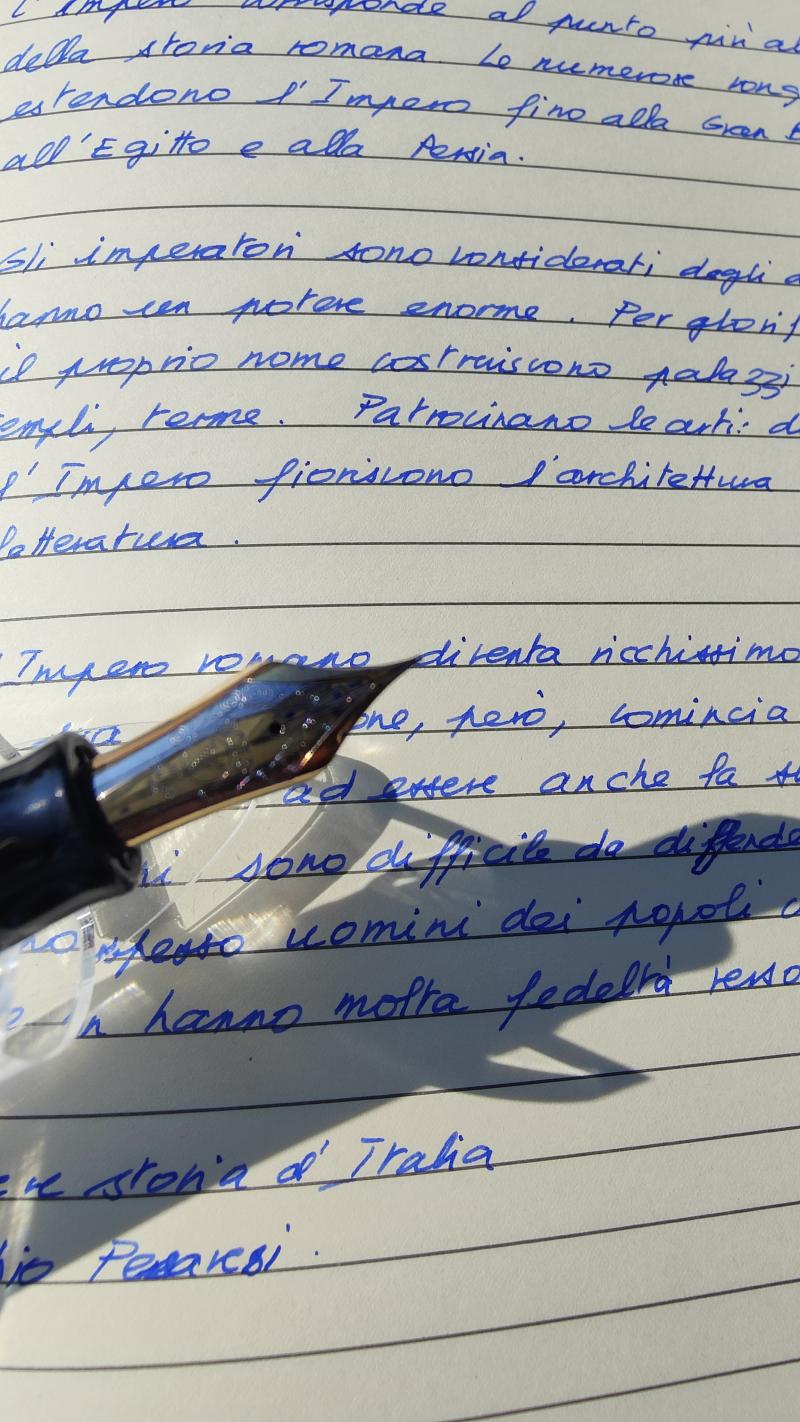 l'Impero corrisponde al punto più al
della storia romana. Le numerose conq
estendono l'Impero fino alla Gran B
all'Egitto e alla Persia.
Gli imperatori sono considerati degli d
hanno un potere enorme. Per glorif
il proprio nome costruiscono palazzi
empli, terme. Patrocinano le arti: d
l'Impero fioriscono l'architettura
letteratura.
Impero romano diventa ricchissimo
one, però, comincia
ad essere anche la s
sono difficile da diffende
spesso uomini dei popoli c
n hanno molta fedeltà verso
storia d'Italia
io Pesaresi.